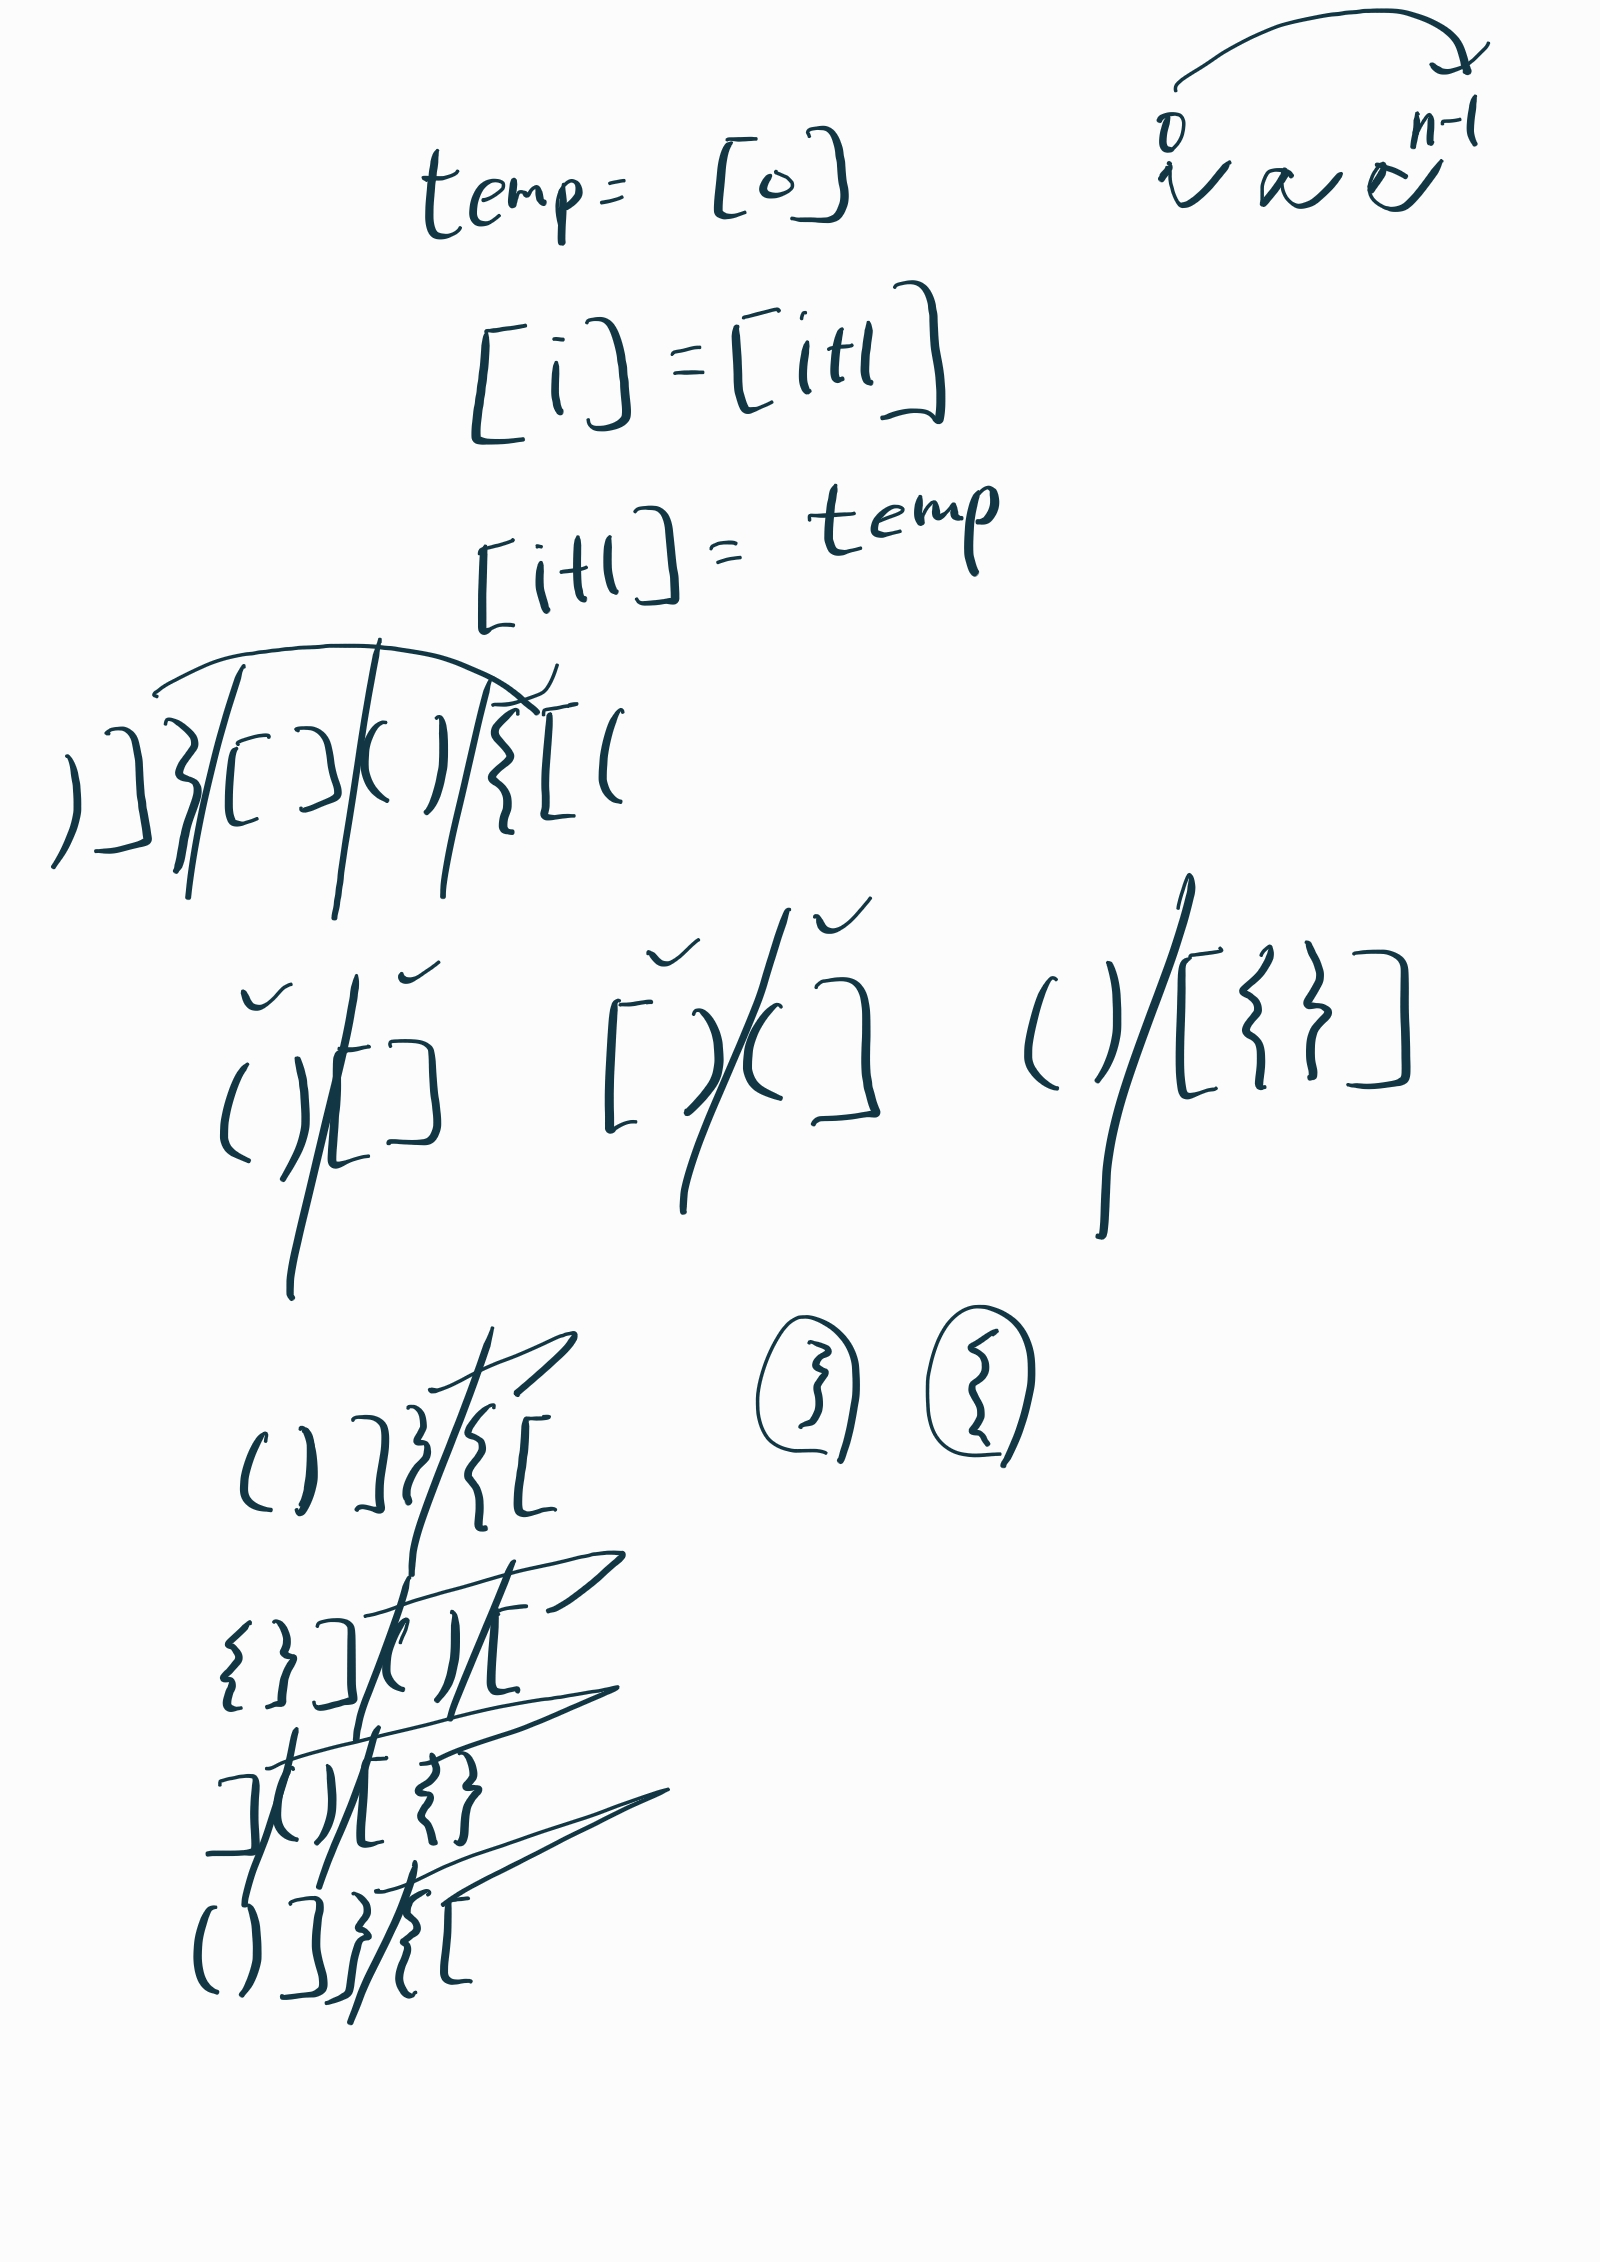 0 n-1
temp= [0]
[i]=[i+1]
[i+1]= temp
)]}[](){[(
()[] [)(] ()[{}]
()]}{[ } {
{}]()[
]()[{}
()]}{[